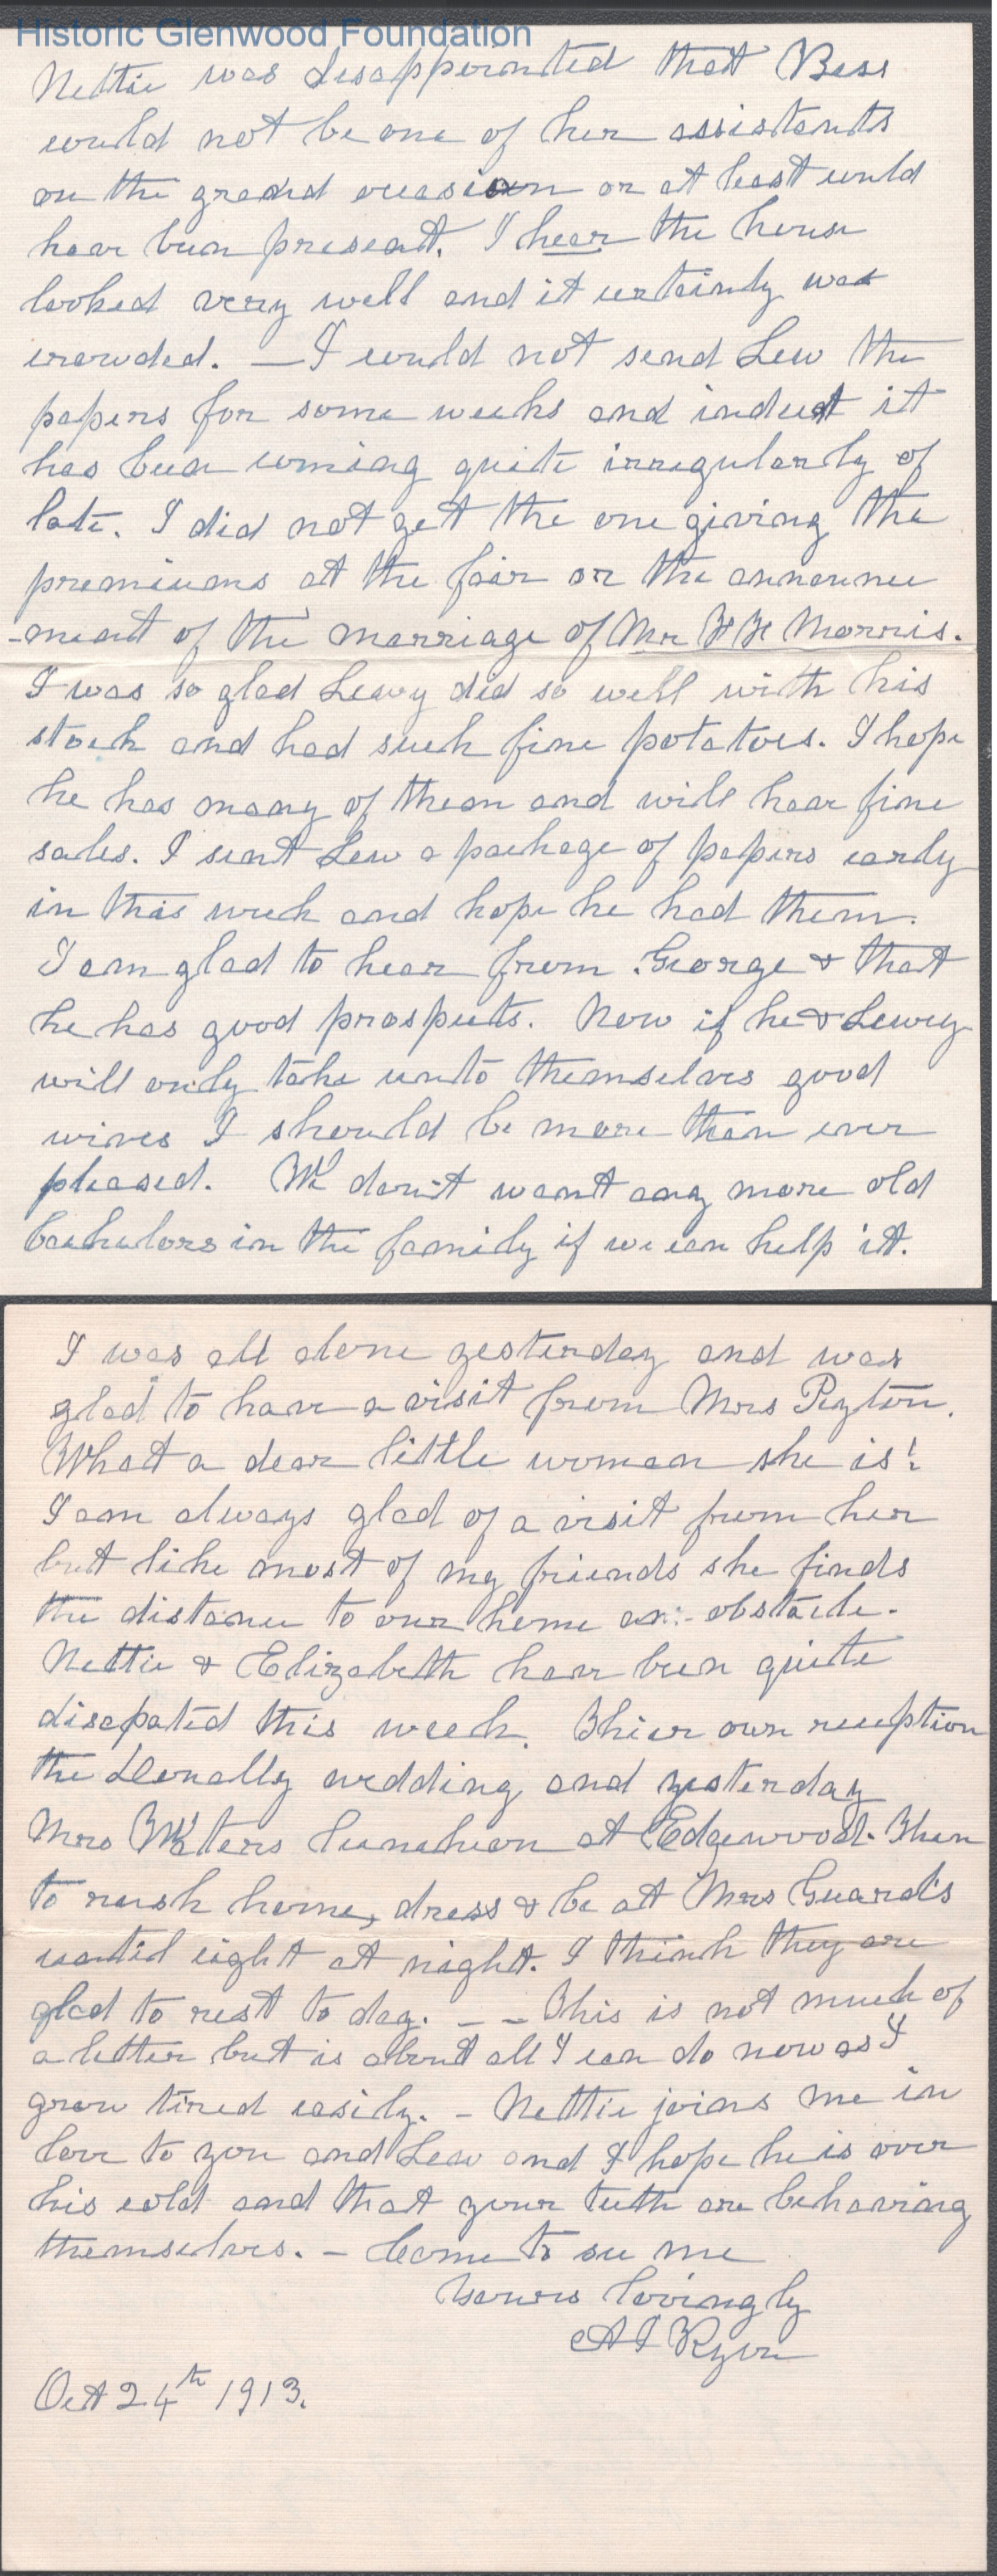 Historic Glenwood Foundation
Nettie was disappointed that Bess
could not be one of her assistants
on the grand occasion or at least could
have been present. I hear the house
looked very well and it certainly was
crowded. — I could not send Lew the
papers for some weeks and indeed it
has been coming quite irregularly of
late. I did not get the one giving the
premiums at the fair or the announce
-ment of the marriage of Mr H H Morris.
I was so glad Lewy did so well with his
stock and had such fine potatoes. I hope
he has many of them and will have fine
sales. I sent Lew a package of papers early
in this week and hope he had them.
I am glad to hear from George & that
he has good prospects. Now if he & Lewy
will only take unto themselves good
wives I should be more than ever
pleased. We don't want any more old
bachelors in the family if we can help it.
I was all alone yesterday and was
glad to have a visit from Mrs Peyton.
What a dear little woman she is!
I am always glad of a visit from her
but like most of my friends she finds
the distance to our home an obstacle.
Nettie & Elizabeth have been quite
disapated this week. Thier own reception
the Donally wedding and yesterday
Mrs Waters luncheon at Edgewood. Then
to rush home, dress & be at Mrs Guard's
until eight at night. I think they are
glad to rest to day. — — This is not much of
a letter but is about all I can do now as I
grow tired easily. — Nettie joins me in
love to you and Lew and I hope he is over
his cold and that your teeth are behaving
themselves. — Come to see me
Yours lovingly
A I Ryon
Oct 24th 1913.